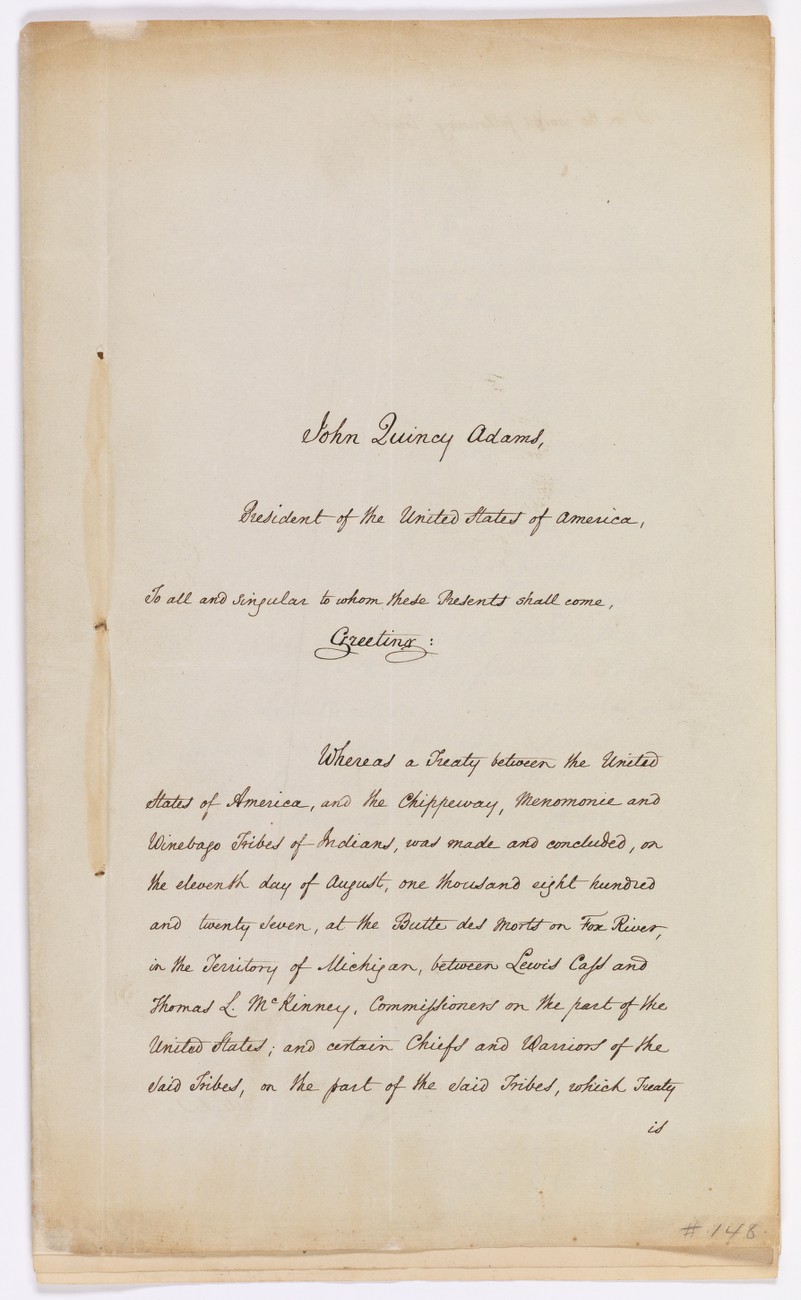 John Quincy Adams,
President of the United States of America,
To all and singular to whom these Presents shall come,
Greeting:
Whereas a Treaty between the United
States of America, and the Chippeway, Menomonie and
Winebago Tribes of Indians, was made and concluded, on
the eleventh day of August, one thousand eight hundred
and twenty seven, at the Butte des Morts on Fox River,
in the Territory of Michigan, between Lewis Cass and
Thomas L. McKinney, Commissioners on the part of the
United States; and certain Chiefs and Warriors of the
said Tribes, on the part of the said Tribes, which Treaty
is
# 148